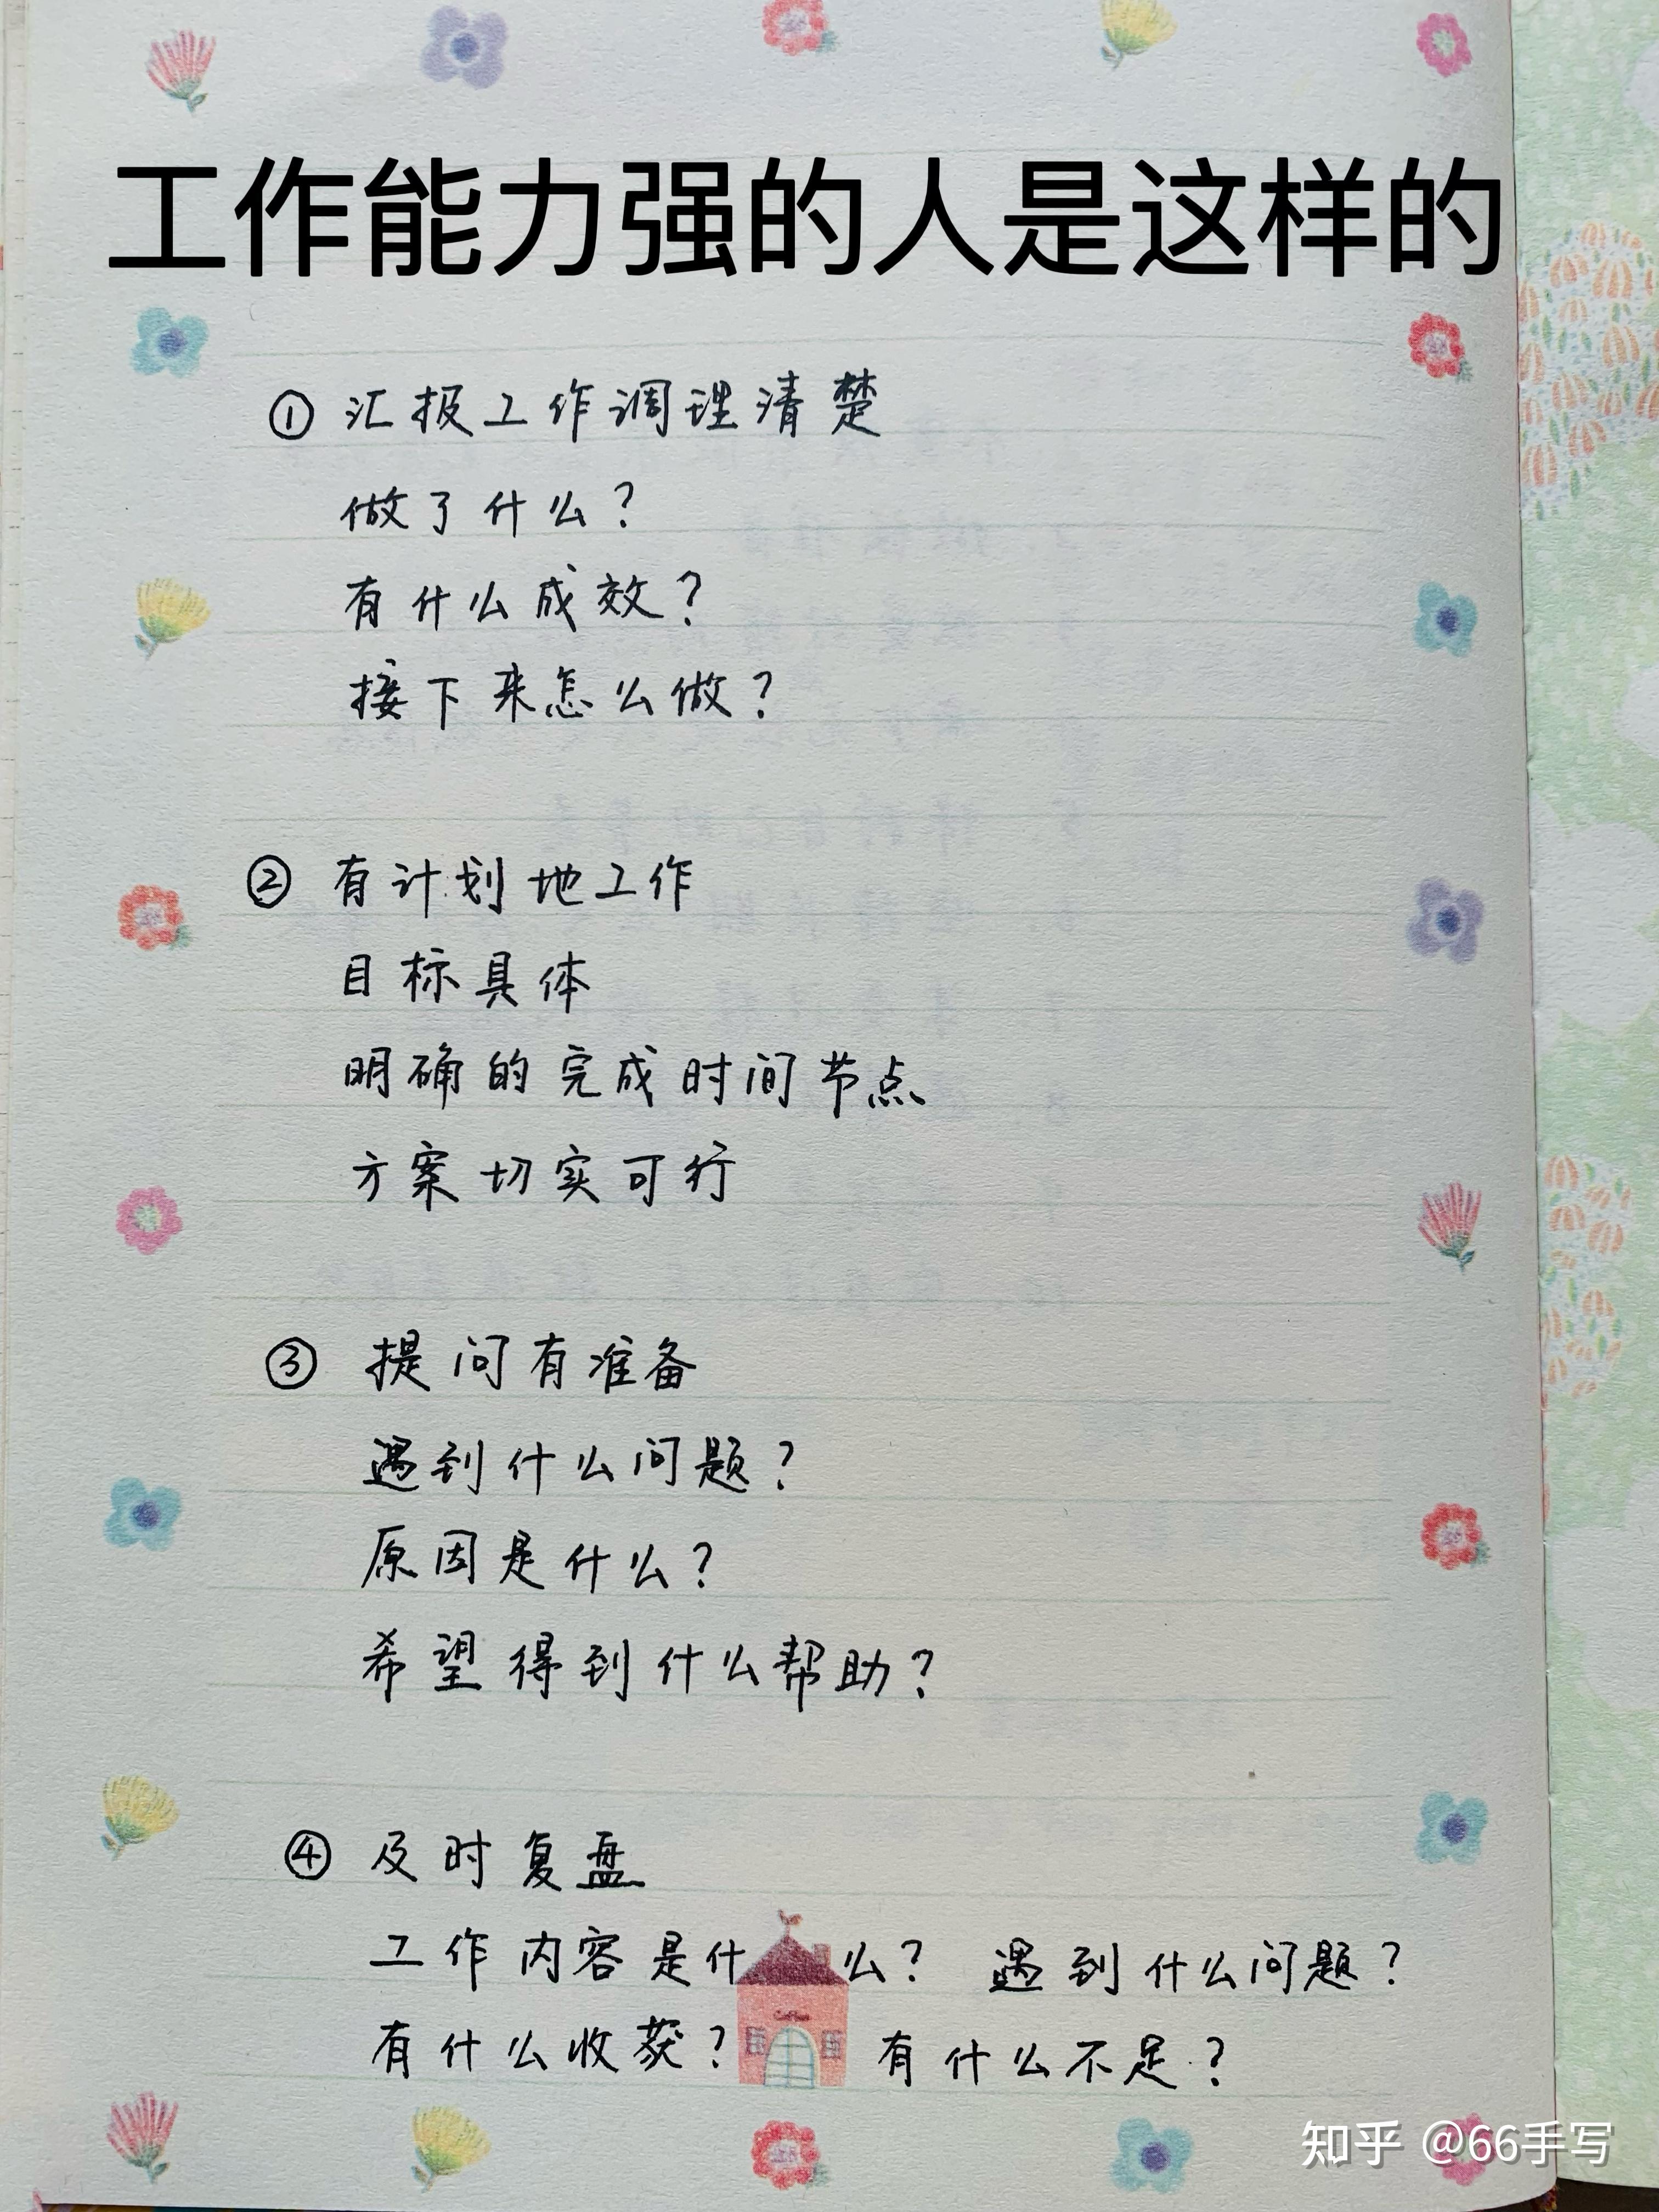 工作能力强的人是这样的
① 汇报工作调理清楚
做了什么？
有什么成效？
接下来怎么做？
② 有计划地工作
目标具体
明确的完成时间节点
方案切实可行
③ 提问有准备
遇到什么问题？
原因是什么？
希望得到什么帮助？
④ 及时复盘
工作内容是什么？ 遇到什么问题？
有什么收获？ 有什么不足？
知乎 @66手写